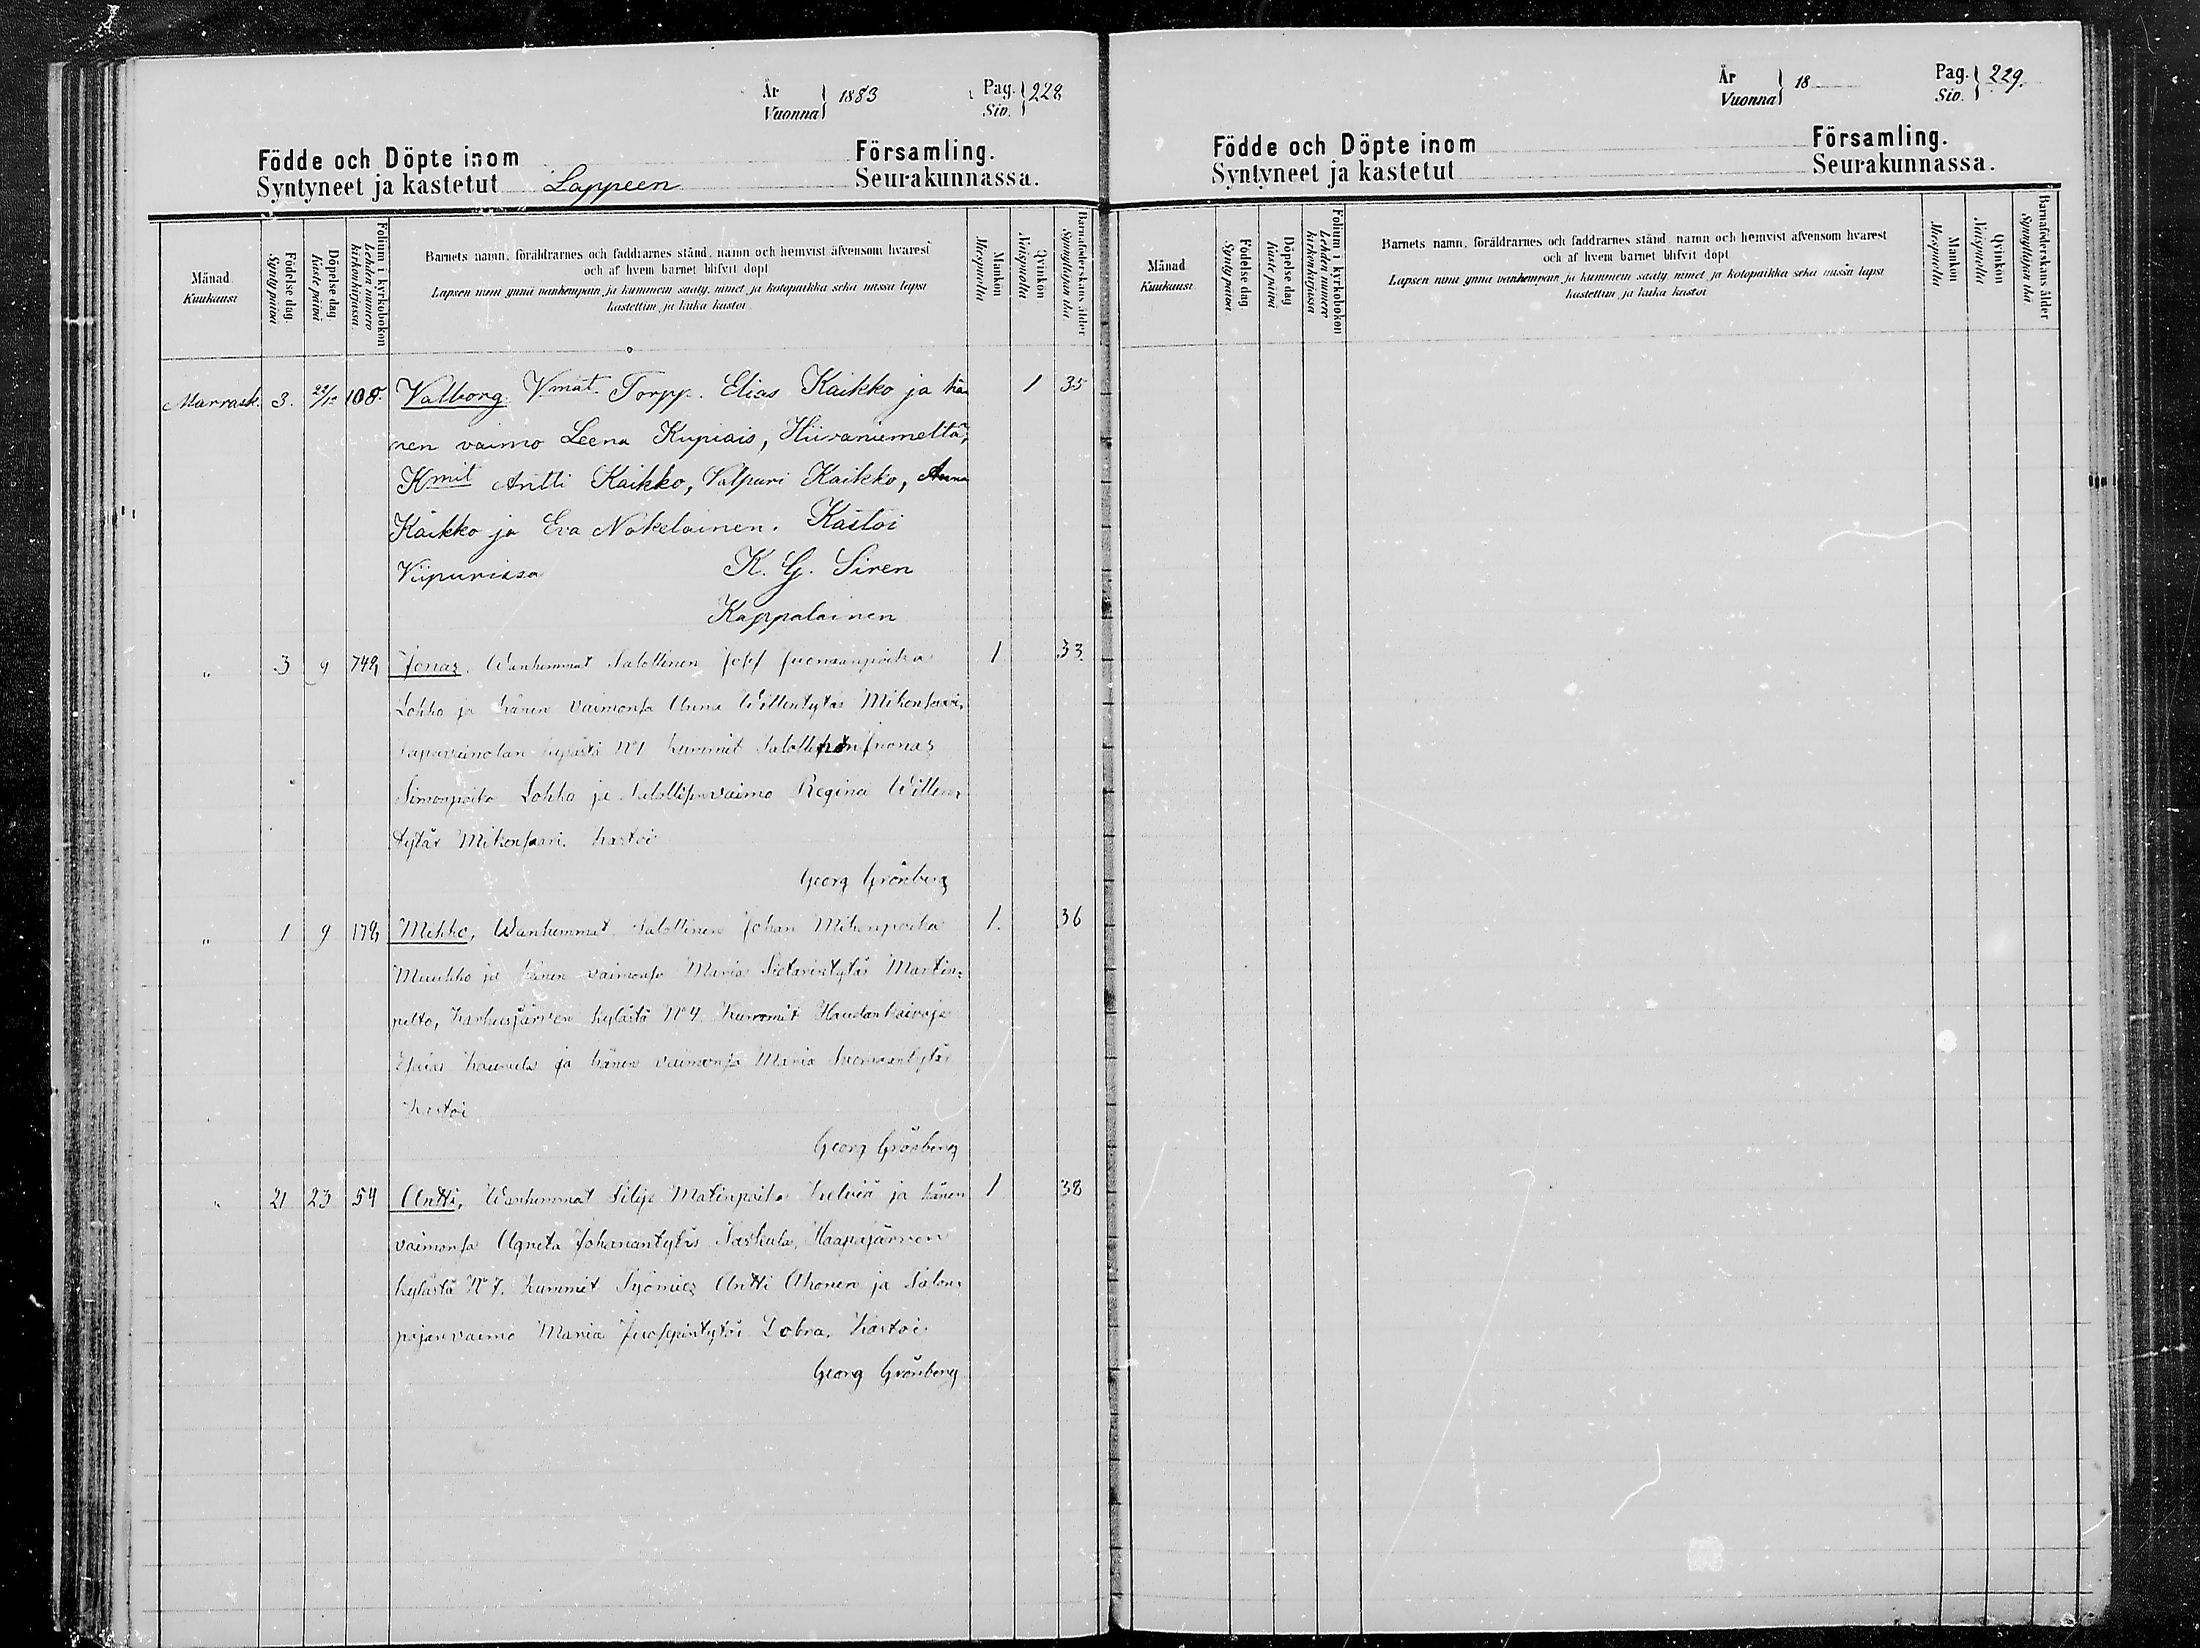 År
Vuonna } 1883
Pag.
Siv. } 228
Födde och Döpte inom Församling.
Syntyneet ja kastetut Lappeen Seurakunnassa.
Månad.
Kuukausi.
Födelse dag.
Synty päivä
Döpelse dag.
Kaste päivä
Folium i kyrkobokon
Lehden numero
kirkonkirjassa.
Barnets namn, föräldrarnes och faddrarnes stånd, namn och hemvist äfvensom hvarest
och af hvem barnet blifvit döpt
Lapsen nimi ynnä vanhempain ja kummein sääty, nimet ja kotopaikka sekä missä lapsi
kastettiin ja kuka kastoi.
Mankön
Miespuolta
Qvinkön
Naispuolta
Barnaföderskans ålder
Synnyttäjän ikä
Marrask. 3. 22/12 108. Valborg Vmat. Torpp. Elias Kaikko ja hä 1 35
nen vaimo Leena Kupiais, Hiivaniemeltä,
Kmit Antti Kaikko, Valpuri Kaikko, Anna
Kaikko ja Eva Nokelainen. Kastoi
Viipurissa K. G. Siren
Kappalainen
" 3 9 742 Jonas. Wanhemmat Talollinen Josef Juonaanpoika 1 33
Lohko ja hänen vaimonsa Anna Willentytär Mikonsaari,
kylästä No 1 kummit Juonas
Simonpoika Lohko ja vaimo Regina Willen-
tytär Mikonsaari. kastoi
Georg Grönberg
" 1 9 172 Mikko, Wanhemmat Talollinen Johan Mikonpoika 1. 36
Muukko ja hänen vaimonsa Maria Martin-
pelto, Karhusjärven kylästä No 4. Kummit Haudankaivaja
ja hänen vaimonsa Maria
Kastoi
Georg Grönberg
" 21 23 54 Antti, Wanhemmat Filip Matinpoika ja hänen 1 38
vaimonsa Agneta Johanantytär Haapajärven
kylästä No 7. kummit Työmies Antti Ahonen ja Talon-
pojanvaimo Maria Dobra. Kastoi
Georg Grönberg
År
Vuonna } 18
Pag.
Siv. } 229.
Födde och Döpte inom Församling.
Syntyneet ja kastetut Seurakunnassa.
Månad
Kuukausi.
Födelse dag.
Synty päivä
Döpelse dag
Kaste päivä
Folium i kyrkobokon
Lehden numero
kirkonkirjassa.
Barnets namn, föräldrarnes och faddrarnes stånd, namn och hemvist äfvensom hvarest
och af hvem barnet blifvit döpt
Lapsen nimi ynnä vanhempain ja kummein sääty nimet ja kotopaikka sekä missä lapsi
kastettiin ja kuka kastoi
Mankön
Miespuolta
Qvinkön
Naispuolta
Barnaföderskans ålder
Synnyttäjän ikä